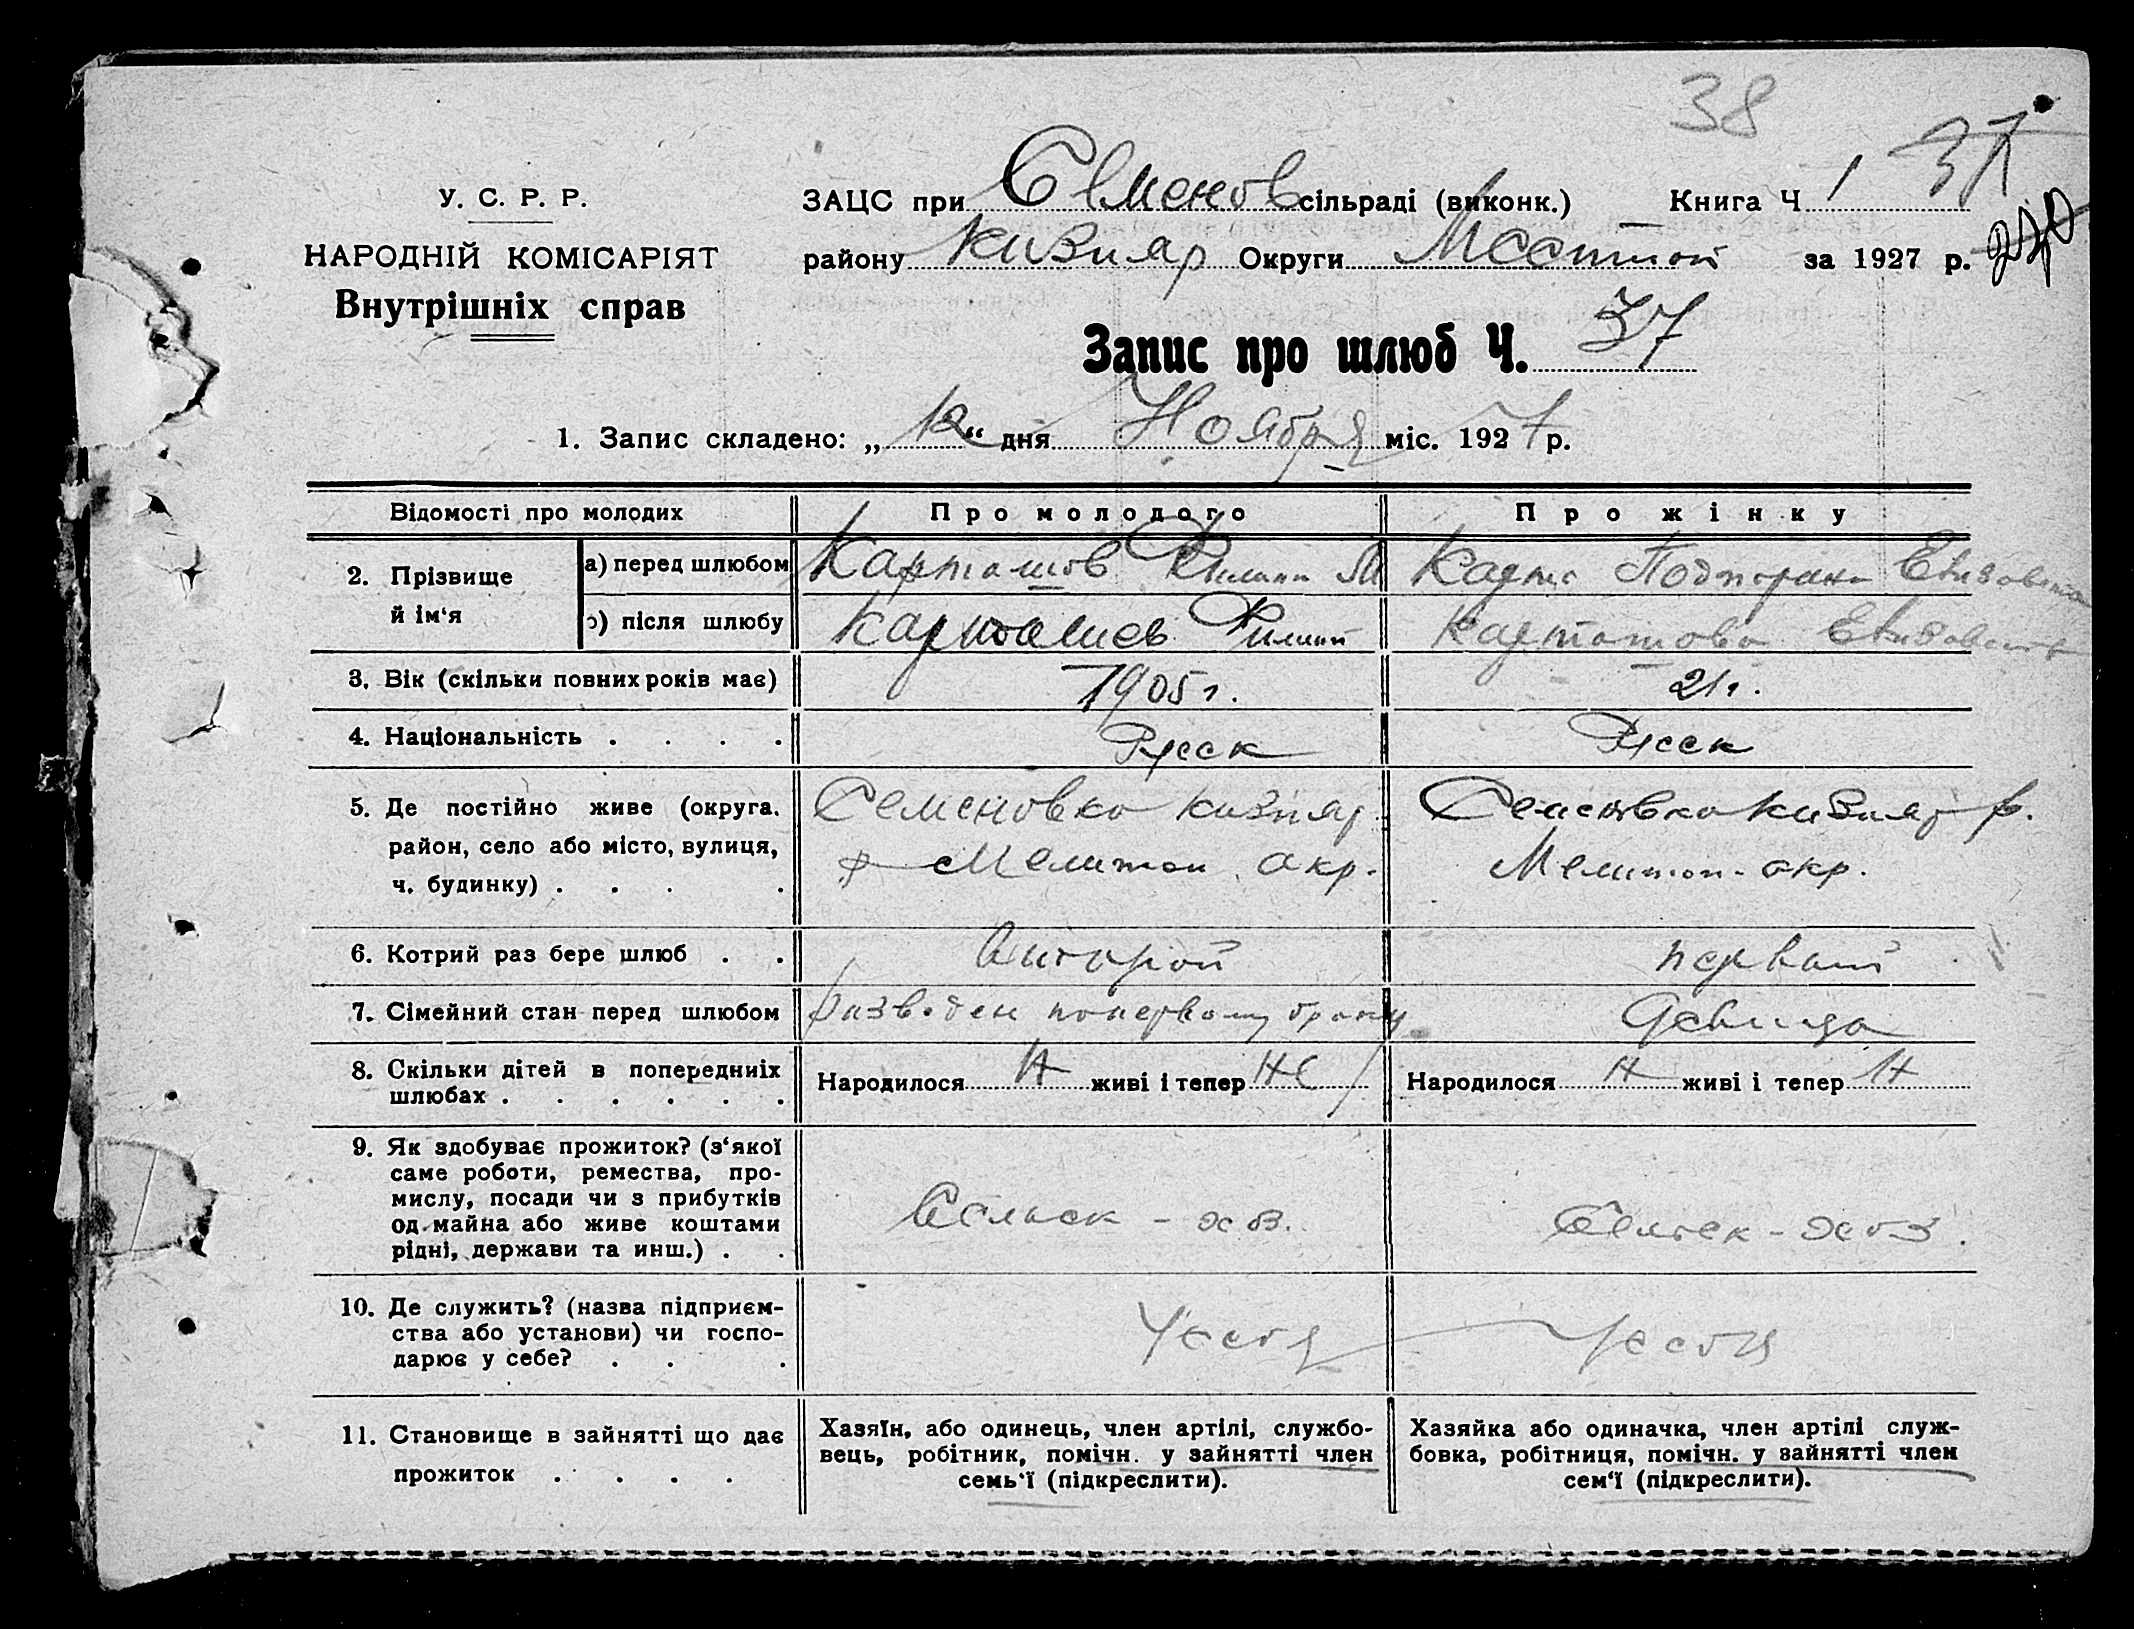 38
У. С. Р. Р.
НАРОДНІЙ КОМІСАРІЯТ
Внутрішніх справ
ЗАЦС при Семенов сільраді (виконк.) Книга Ч 1 37
району Кизияр Округи за 1927 р. 270
Запис про шлюб Ч. 37
1. Запис складено: „12“ дня Ноября міс. 1927 р.
Відомості про молодих Про молодого Про жінку
2. Прізвище й ім‘я
а) перед шлюбом Карташов Филипп Подпорин Елизавета
б) після шлюбу Карташев Филипп Карташова Елизавета
3. Вік (скільки повних років має) 1905 г. 21 г.
4. Національність . . . . Русск Русск
5. Де постійно живе (округа, Семеновка Кизияр Семеновка Кизияр р.
район, село або місто, вулиця, р Мелитоп окр. Мелитоп. окр.
ч. будинку) . . . .
6. Котрий раз бере шлюб . . второй первый
7. Сімейний стан перед шлюбом разведен по первому браку Девица
8. Скільки дітей в попередниіх
шлюбах . . . . . . Народилося Н живі і тепер Не Народилося Н живі і тепер Н
9. Як здобуває прожиток? (з‘якої
саме роботи, ремества, про-
мислу, посади чи з прибутків Сельск - хоз. Сельск - хоз.
од майна або живе коштами
рідні, держави та инш.) . .
10. Де служить? (назва підприєм-
ства або установи) чи госпо- У себя У себя
дарює у себе? . . .
11. Становище в зайнятті що дає
прожиток . . . .
Хазяїн, або одинець, член артілі, службо-
вець, робітник, помічн. у зайнятті член
семь‘ї (підкреслити).
Хазяйка або одиначка, член артілі служ-
бовка, робітниця, помічн. у зайнятті член
сем‘ї (підкреслити).